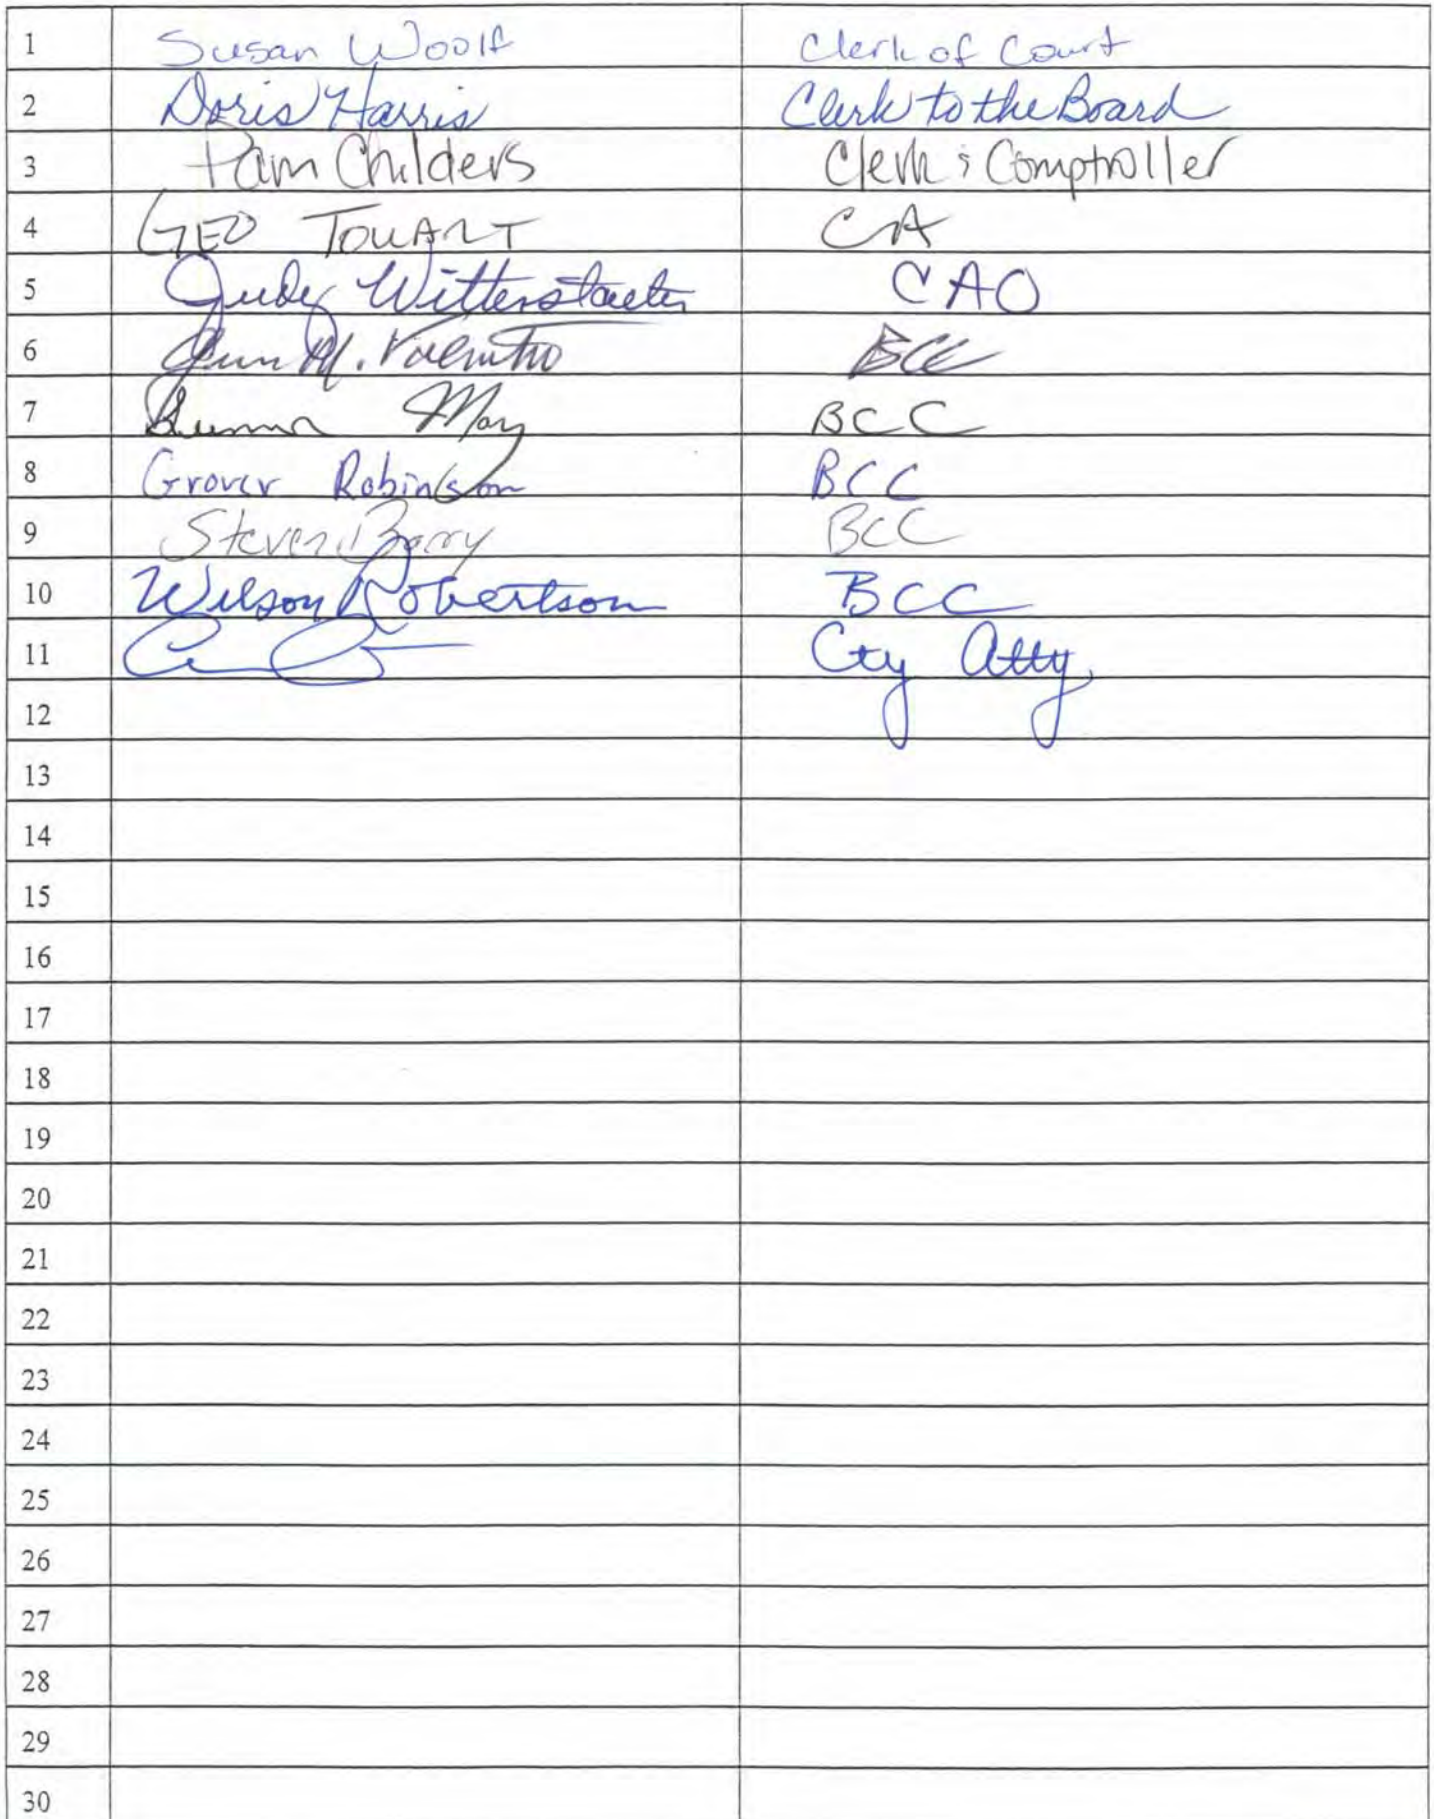 1 Susan Woolf Clerk of Court
2 Doris Harris Clerk to the Board
3 Pam Childers Clerk & Comptroller
4 GEO TOUART CA
5 Judy Witterstaeter CAO
6 M. Valentino BCC
7 May BCC
8 Grover Robinson BCC
9 Steven Barry BCC
10 Wilson Robertson BCC
11 Cty Atty
12
13
14
15
16
17
18
19
20
21
22
23
24
25
26
27
28
29
30